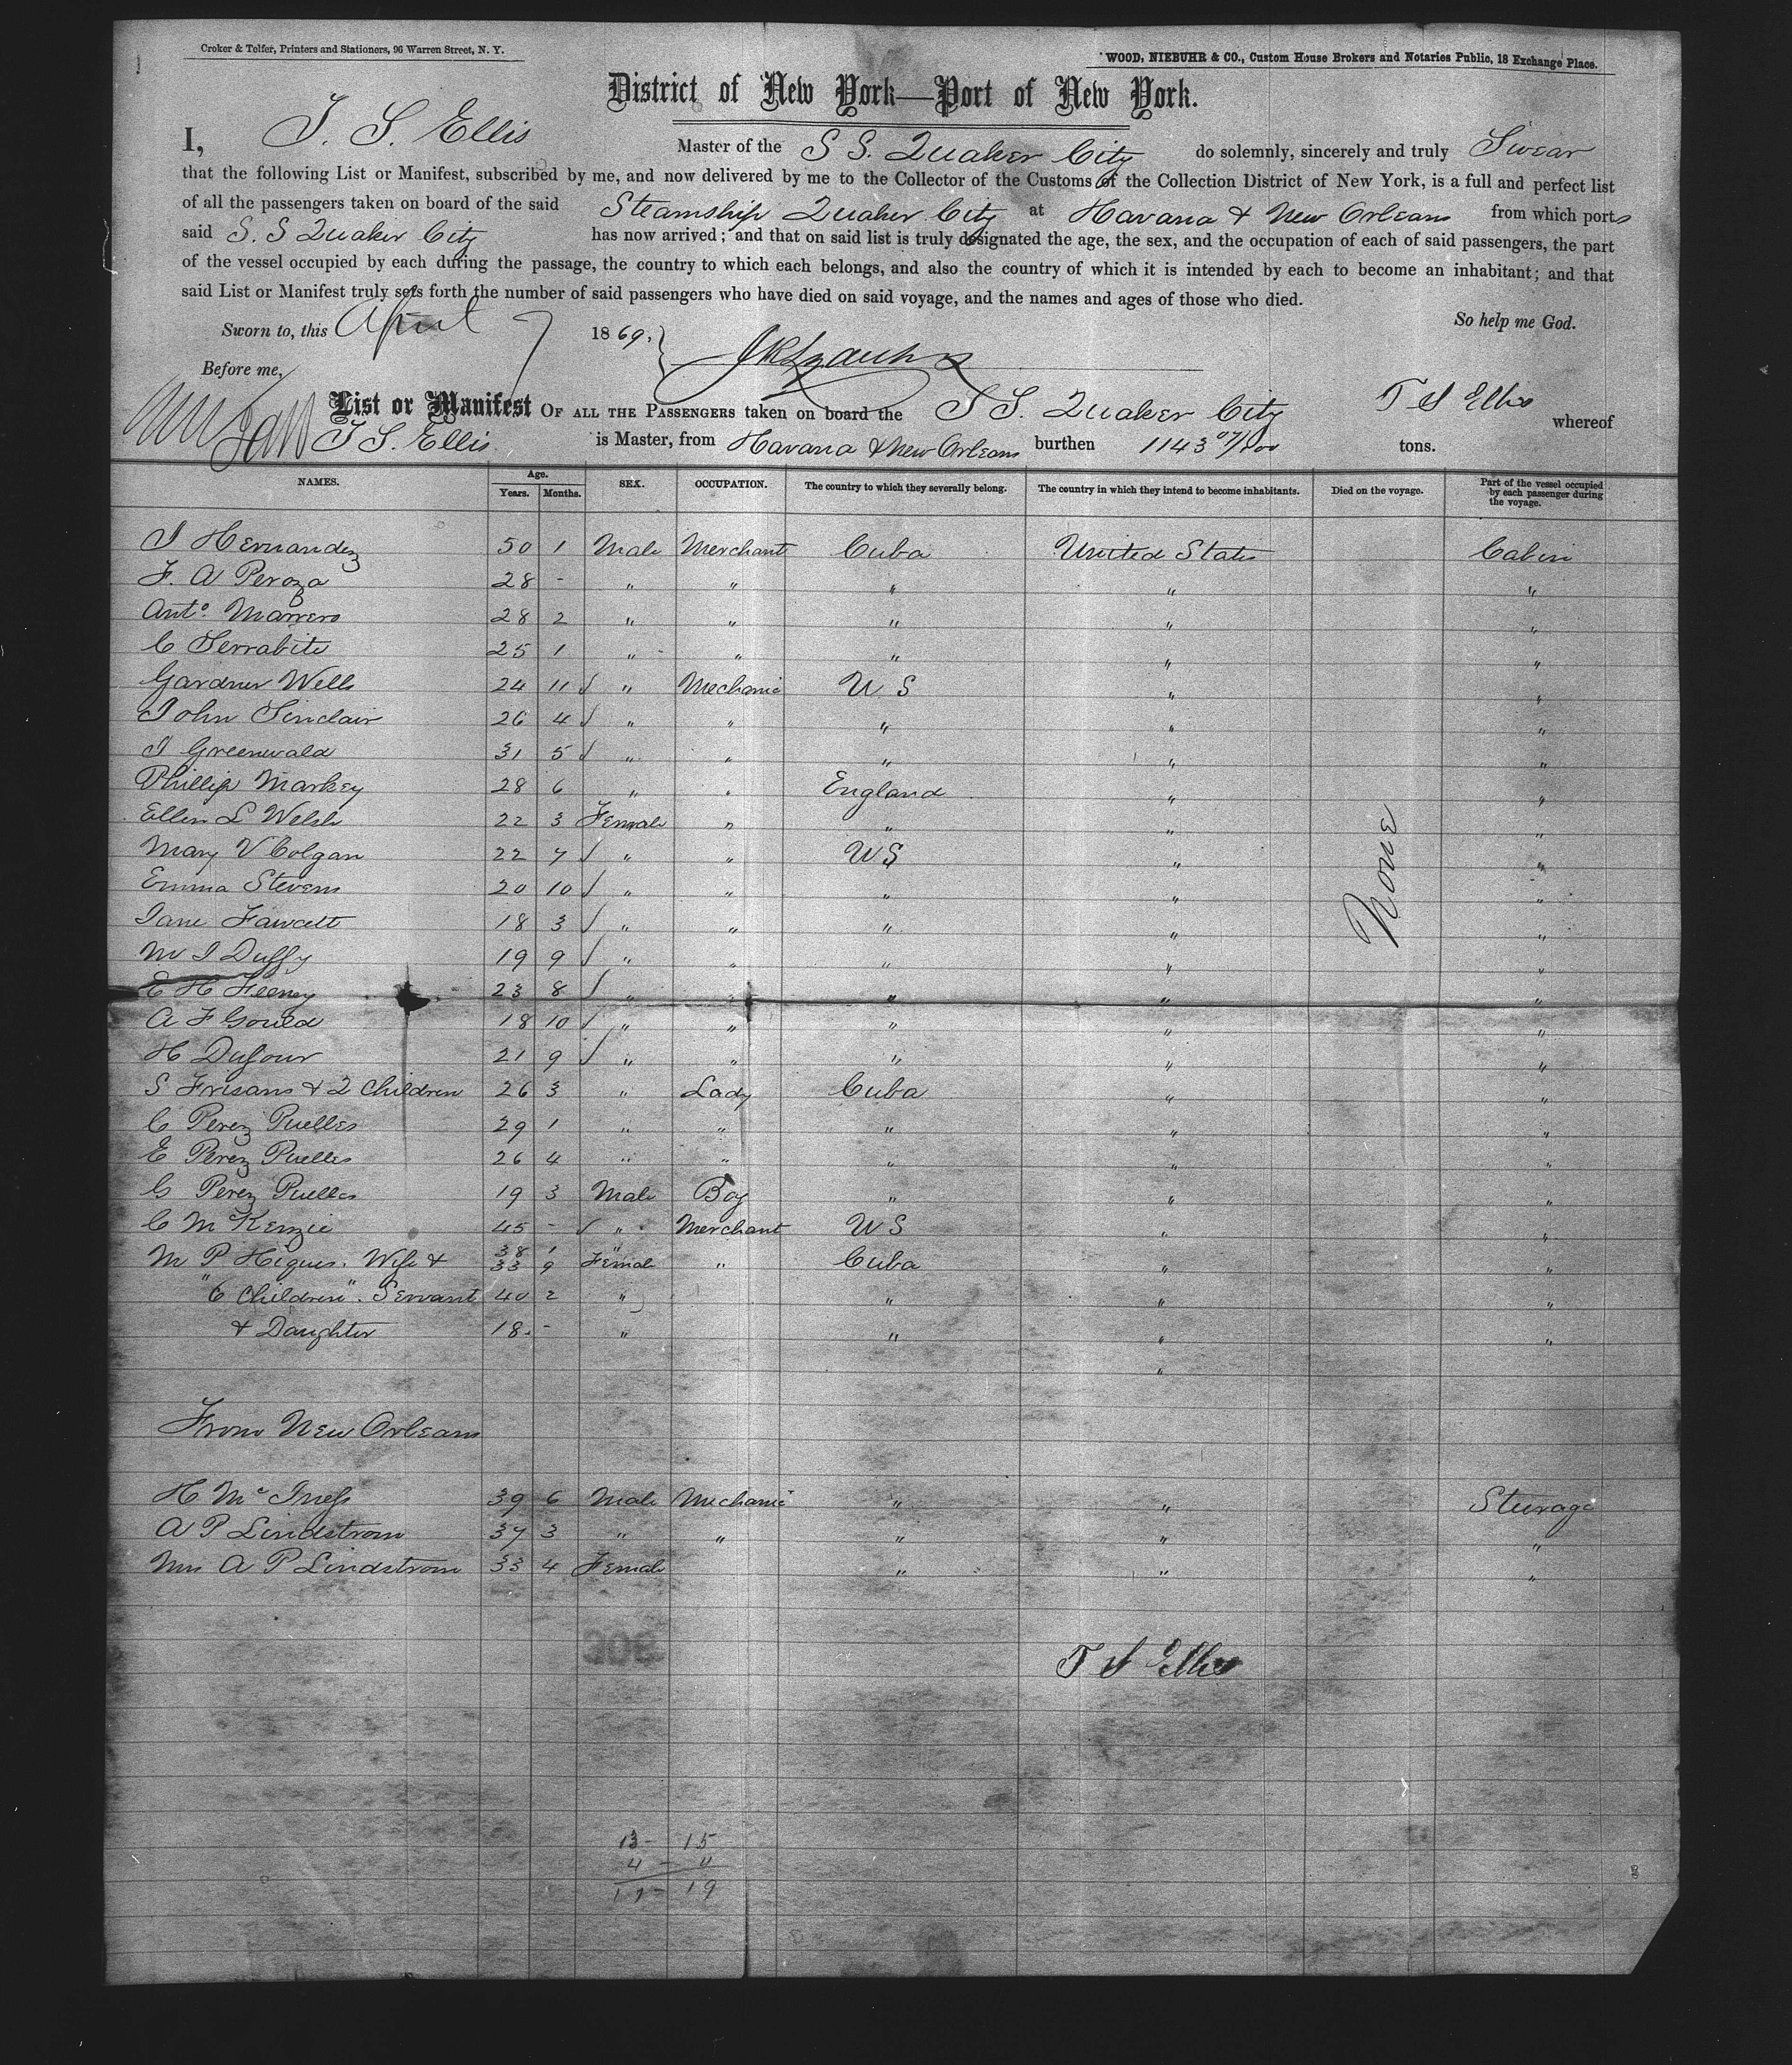 Croker & Telfer, Printers and Stationers, 96 Warren Street, N. Y.
WOOD, NIEBUHR & CO., Custom House Brokers and Notaries Public, 18 Exchange Place.
District of New York—Port of New York.
I, T. S. Ellis Master of the S S. Quaker City do solemnly, sincerely and truly Swear
that the following List or Manifest, subscribed by me, and now delivered by me to the Collector of the Customs of the Collection District of New York, is a full and perfect list
of all the passengers taken on board of the said Steamship Quaker City at Havana & New Orleans from which ports
said S. S Quaker City has now arrived; and that on said list is truly designated the age, the sex, and the occupation of each of said passengers, the part
of the vessel occupied by each during the passage, the country to which each belongs, and also the country of which it is intended by each to become an inhabitant; and that
said List or Manifest truly sets forth the number of said passengers who have died on said voyage, and the names and ages of those who died.
So help me God.
Sworn to, this April 7 1869.
Before me,
List or Manifest OF ALL THE PASSENGERS taken on board the S S. Quaker City T S Ellis whereof
T S. Ellis is Master, from Havana & New Orleans burthen 1143 07/100 tons.
NAMES. Age. Years. Months. SEX. OCCUPATION. The country to which they severally belong. The country in which they intend to become inhabitants. Died on the voyage. Part of the vessel occupied by each passenger during the voyage.
J Hernandez 50 1 Male Merchant Cuba United States Cabin
F. A Peroza 28 - " " " " "
Anto. Marrero 28 2 " " " " "
C Serrabite 25 1 " " " " "
Gardner Wells 24 11 " Mechanic U S " "
John Sinclair 26 4 " " " " "
J Greenwald 31 5 " " " " "
Phillip Markey 28 6 " " England " "
Ellen L Welsh 22 3 Female " " " "
Mary V Colgan 22 7 " " U S " "
None
Emma Stevens 20 10 " " " " "
Jane Fawcett 18 3 " " " " "
M J Duffy 19 9 " " " " "
E H Feeney 23 8 " " " " "
A F Gould 18 10 " " " " "
H Dufour 21 9 " " " " "
S Frisans & 2 Children 26 3 " Lady Cuba " "
C Perez Puelles 29 1 " " " " "
E Perez Puelles 26 4 " " " " "
G Perez Puelles 19 3 Male Boy " " "
C McKenzie 45 - " Merchant U S " "
M P Hiques. Wife & 38 1 " 33 9 Female " Cuba " "
" 6 Children ". Servant 40 2 " " " "
& Daughter 18. - " " " "
"
From New Orleans
H McIness 39 6 Male Mechanic " " Sterage
A P Lindstrom 37 3 " " " " "
Mrs A P Lindstrom 33 4 Female " " "
T S Ellis
13 - 15
4 - 4
17 - 19